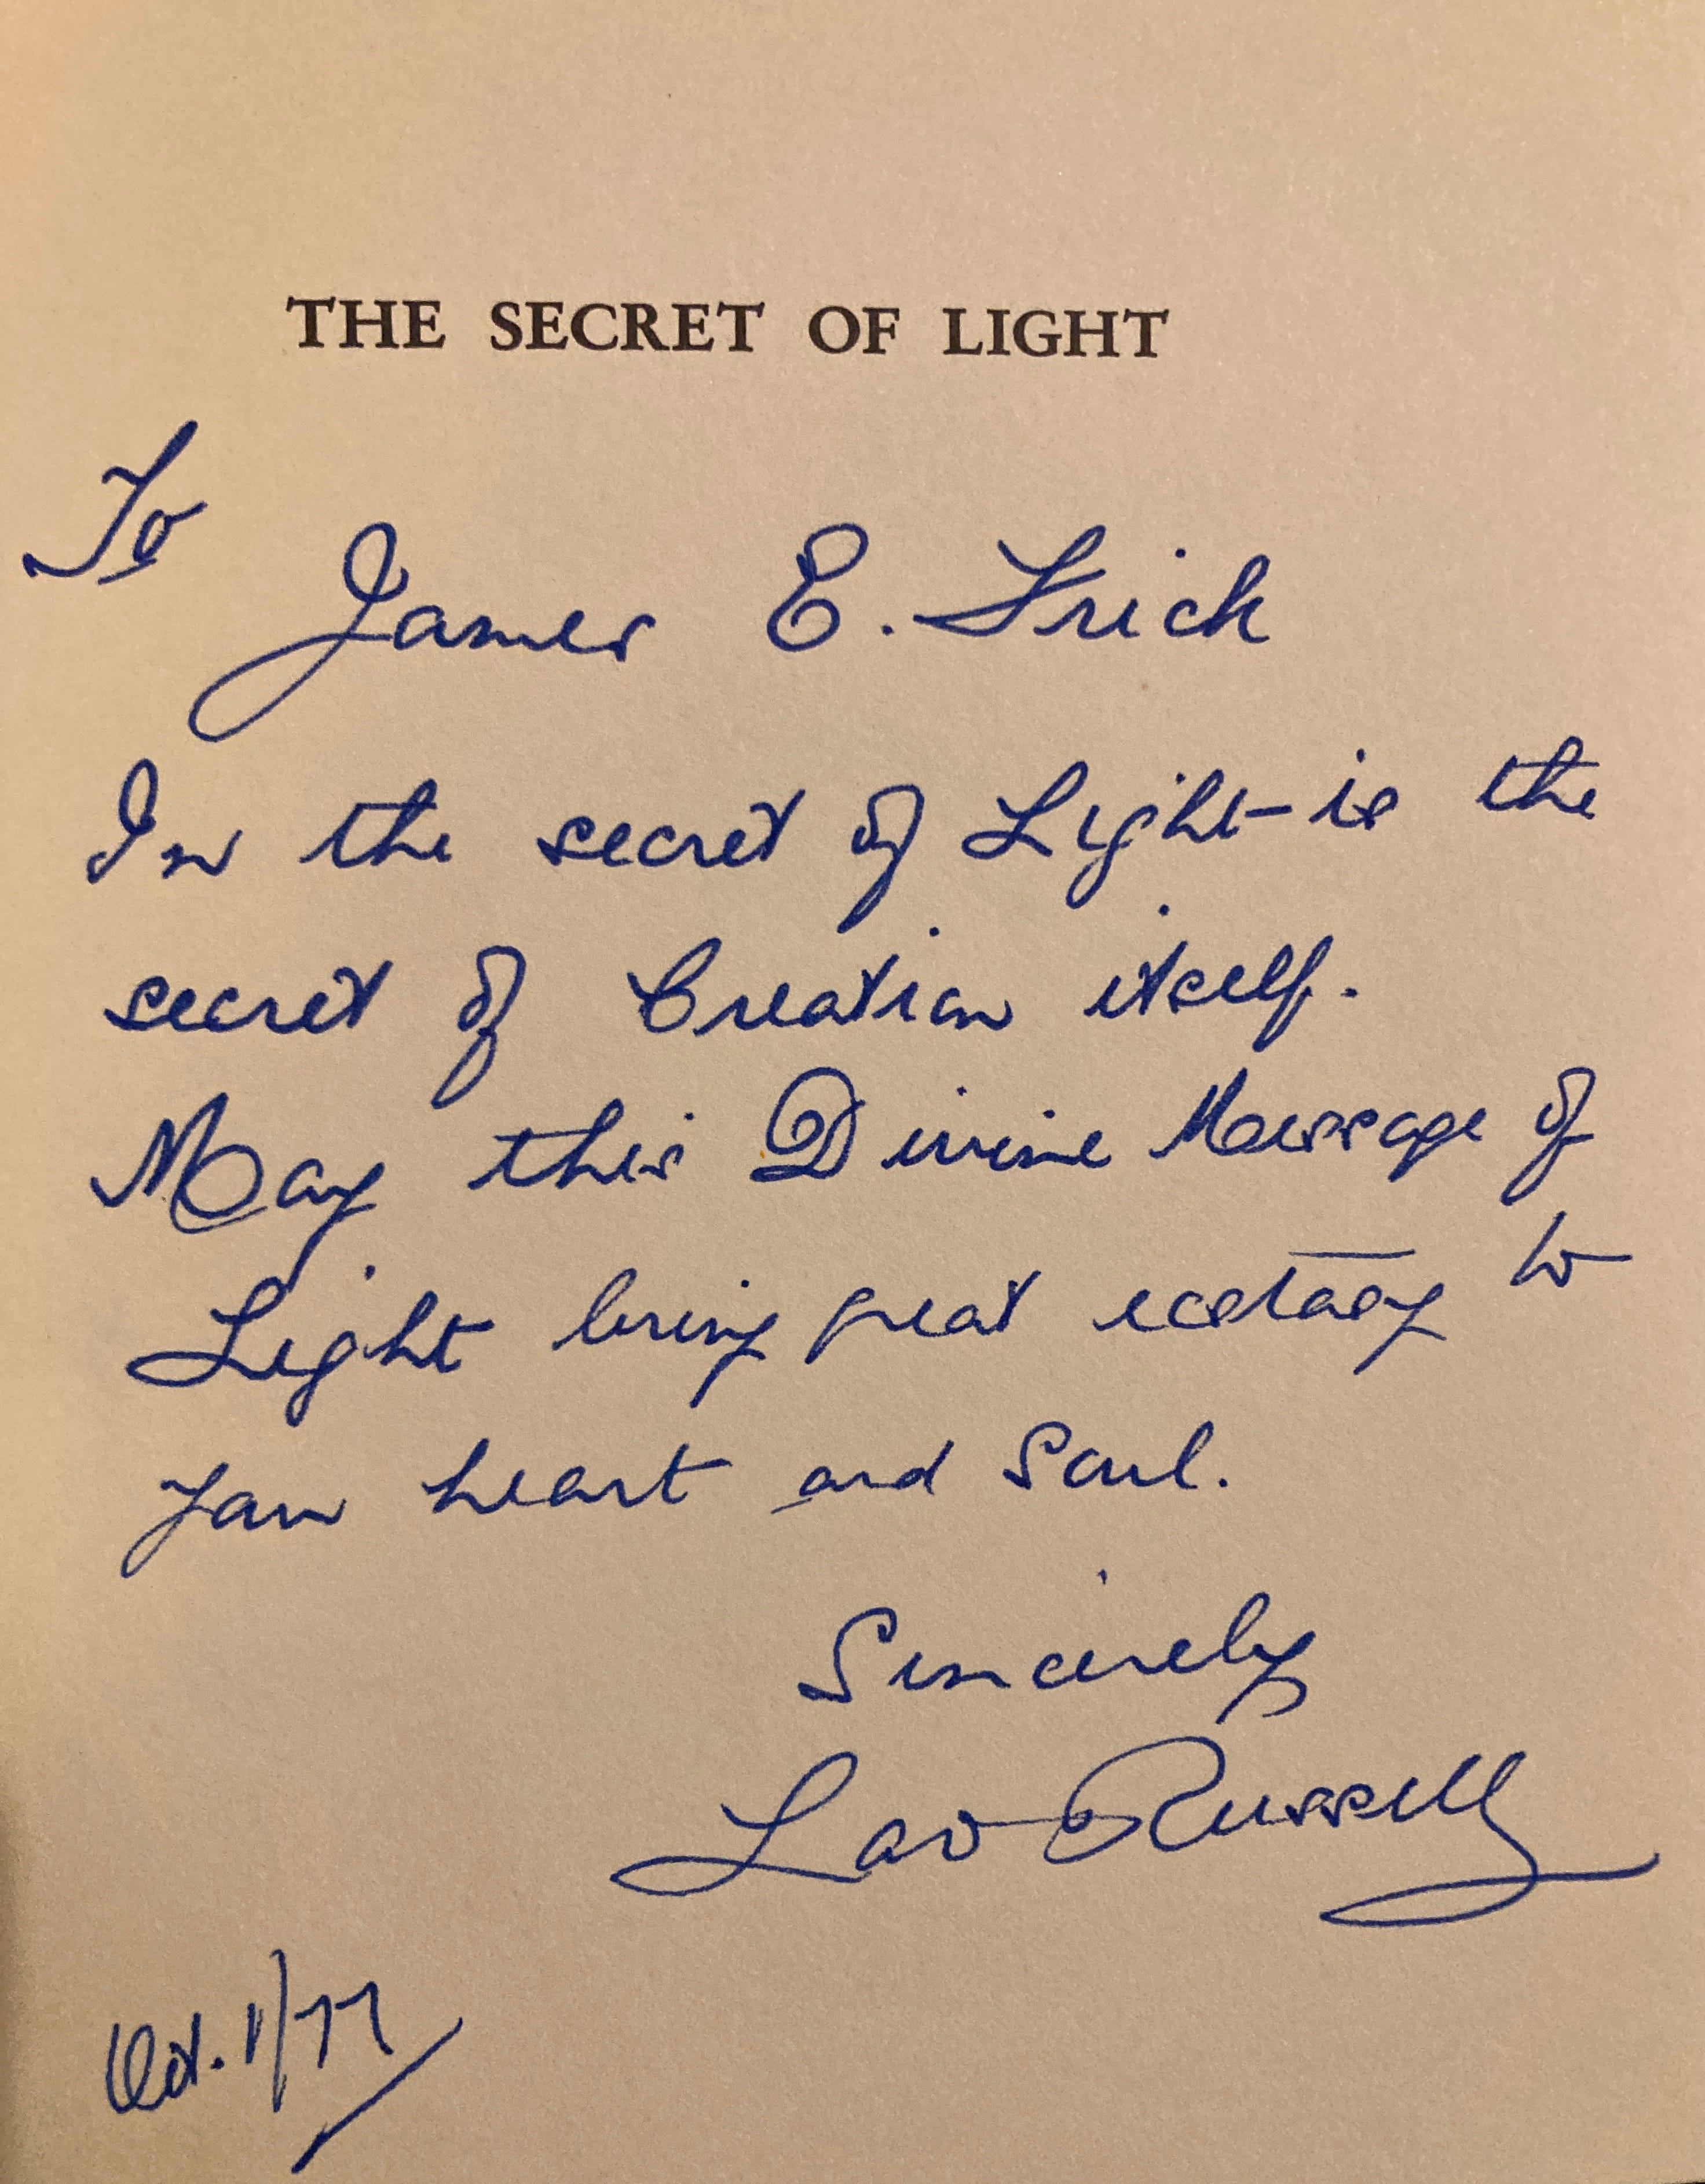 THE SECRET OF LIGHT
To
James E. Frick
In the secret of Light is the
secret of Creation itself.
May this Divine Message of
Light bring great ecstasy to
your heart and Soul.
Sincerely
Lao Russell
Oct. 1/77